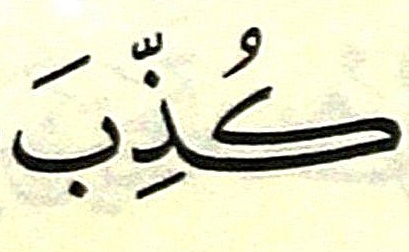 كُذِّبَ